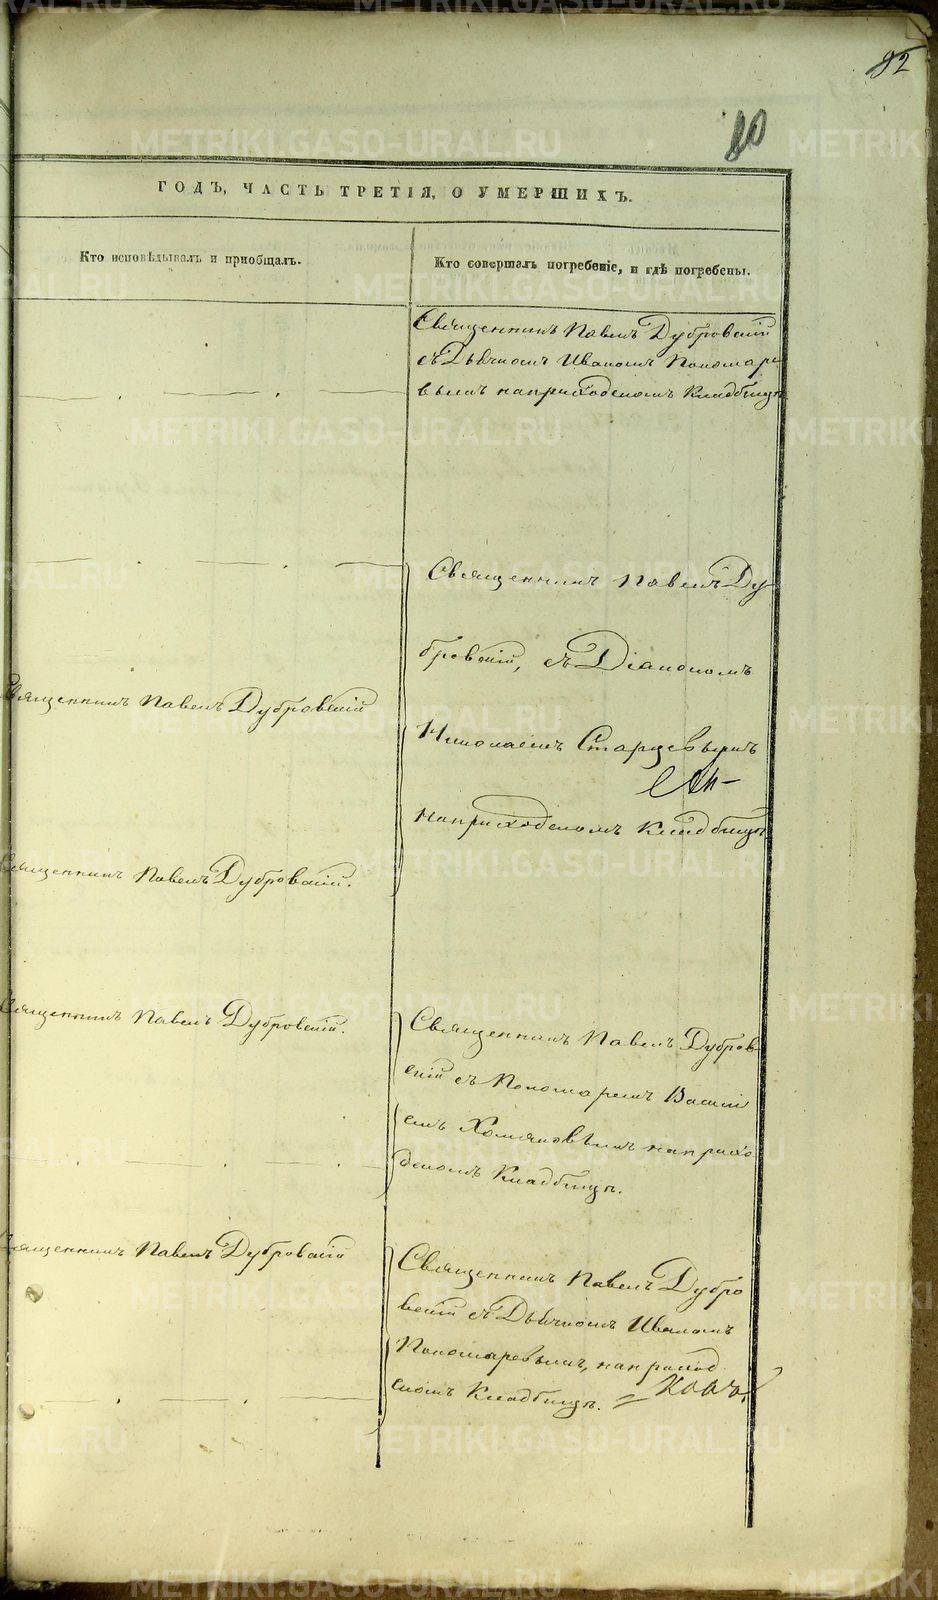 82
80
ГОДЪ, ЧАСТЬ ТРЕТІЯ, О УМЕРШИХЪ.
Кто исповѣдывалъ и пріобщалъ.
Кто совершалъ погребеніе, и гдѣ погребены.
Священникъ Павелъ Дубровскій
съ Дьячкомъ Иваномъ Пономаре
вымъ на приходскомъ Кладбищѣ
Священникъ Павелъ Ду
бровскій, съ Діакономъ
Священникъ Павелъ Дубровскій
Николаемъ Старцевымъ
на приходскомъ Кладбищѣ
Священникъ Павелъ Дубровскій.
Священникъ Павелъ Дубровскій.
Священникъ Павелъ Дубров
скій съ Пономаремъ Васілі
емъ Хомяковымъ на прихо
дскомъ Кладбищѣ.
Священникъ Павелъ Дубровскій
Священникъ Павелъ Дубро
вскій съ Дьячкомъ Иваномъ
Пономаревымъ, на приход
скомъ Кладбищѣ.
METRIKI.GASO-URAL.RU